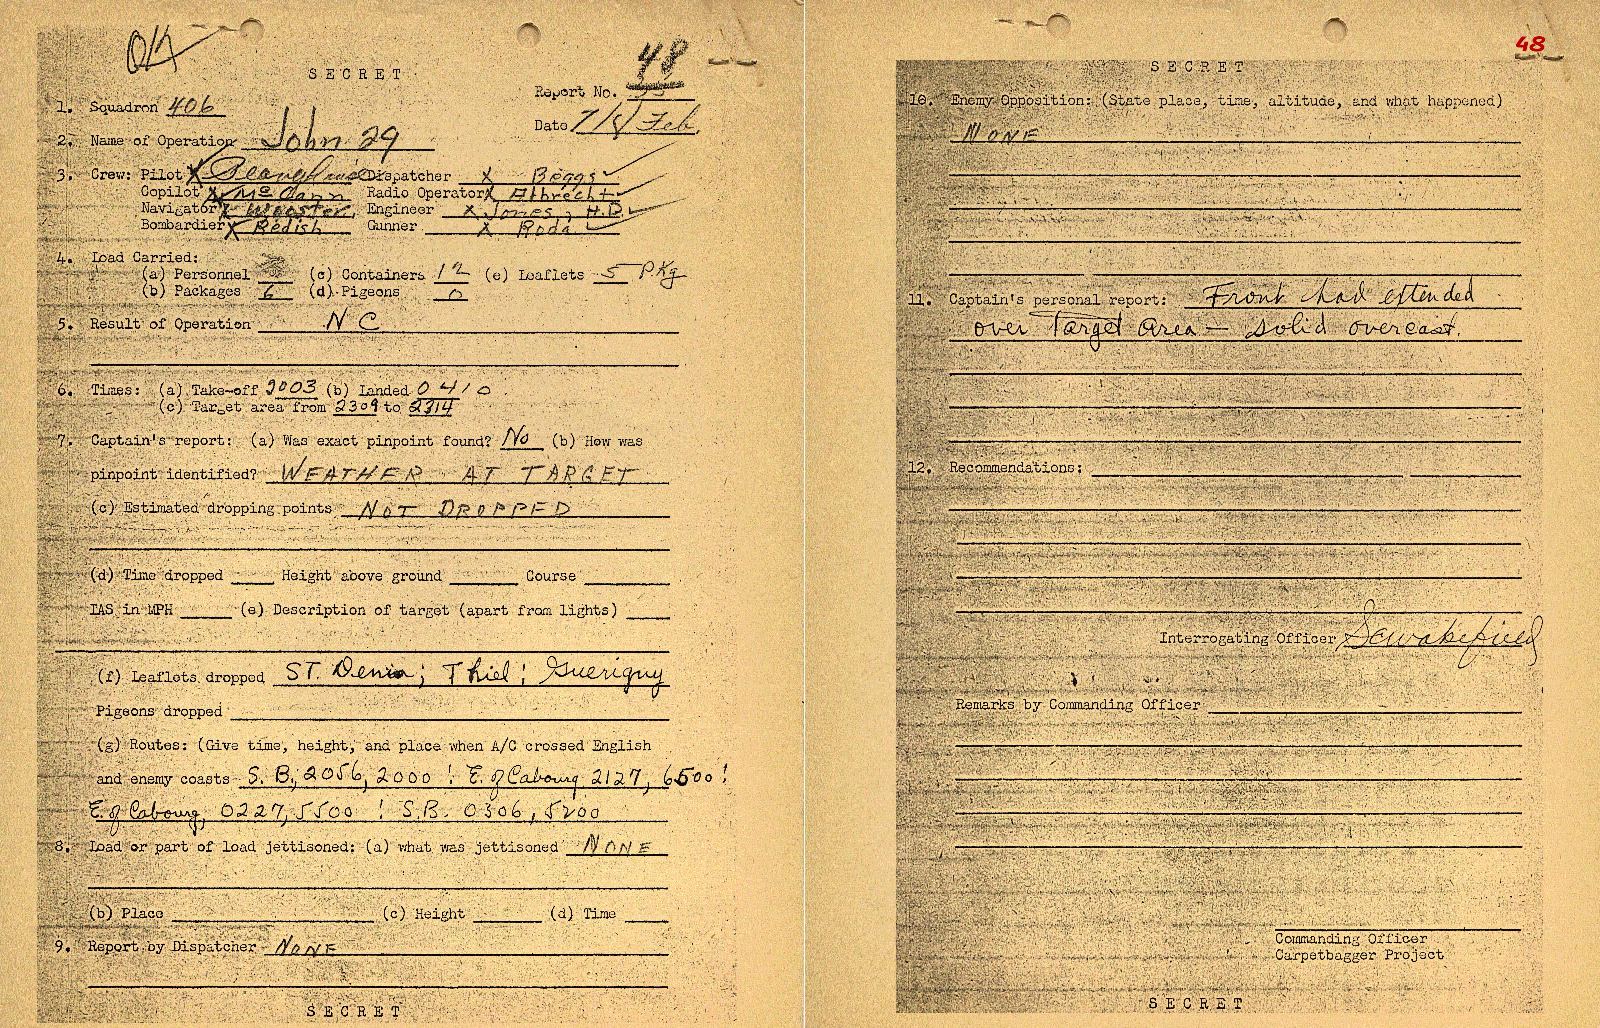 OK
SECRET
48
Report No.
1. Squadron 406
Date 7/8 Feb.
2. Name of Operation John 29
3. Crew: Pilot X Dispatcher X Beggs
Copilot X McGann Radio Operator X Albrecht
Navigator X Wooster Engineer X Jones, H.D.
Bombardier X Redish Gunner X Roda
4. Load Carried:
(a) Personnel (c) Containers 12 (e) Leaflets 5 PKg
(b) Packages 6 (d) Pigeons 0
5. Result of Operation NC
6. Times: (a) Take-off 2003 (b) Landed 0410
(c) Target area from 2309 to 2314
7. Captain's report: (a) Was exact pinpoint found? No (b) How was
pinpoint identified? WEATHER AT TARGET
(c) Estimated dropping points NOT DROPPED
(d) Time dropped Height above ground Course
IAS in MPH (e) Description of target (apart from lights)
(f) Leaflets dropped ST. Denis; Thiel; Guerigny
Pigeons dropped
(g) Routes: (Give time, height, and place when A/C crossed English
and enemy coasts S.B., 2056, 2000 ; E. of Cabourg 2127, 6500 ;
E. of Cabourg, 0227, 5500 ; S.B. 0306, 5200
8. Load or part of load jettisoned: (a) what was jettisoned NONE
(b) Place (c) Height (d) Time
9. Report by Dispatcher NONE
SECRET
48
SECRET
10. Enemy Opposition: (State place, time, altitude, and what happened)
NONE
11. Captain's personal report: Front had extended
over Target area — solid overcast.
12. Recommendations:
Interrogating Officer
Remarks by Commanding Officer
Commanding Officer
Carpetbagger Project
SECRET